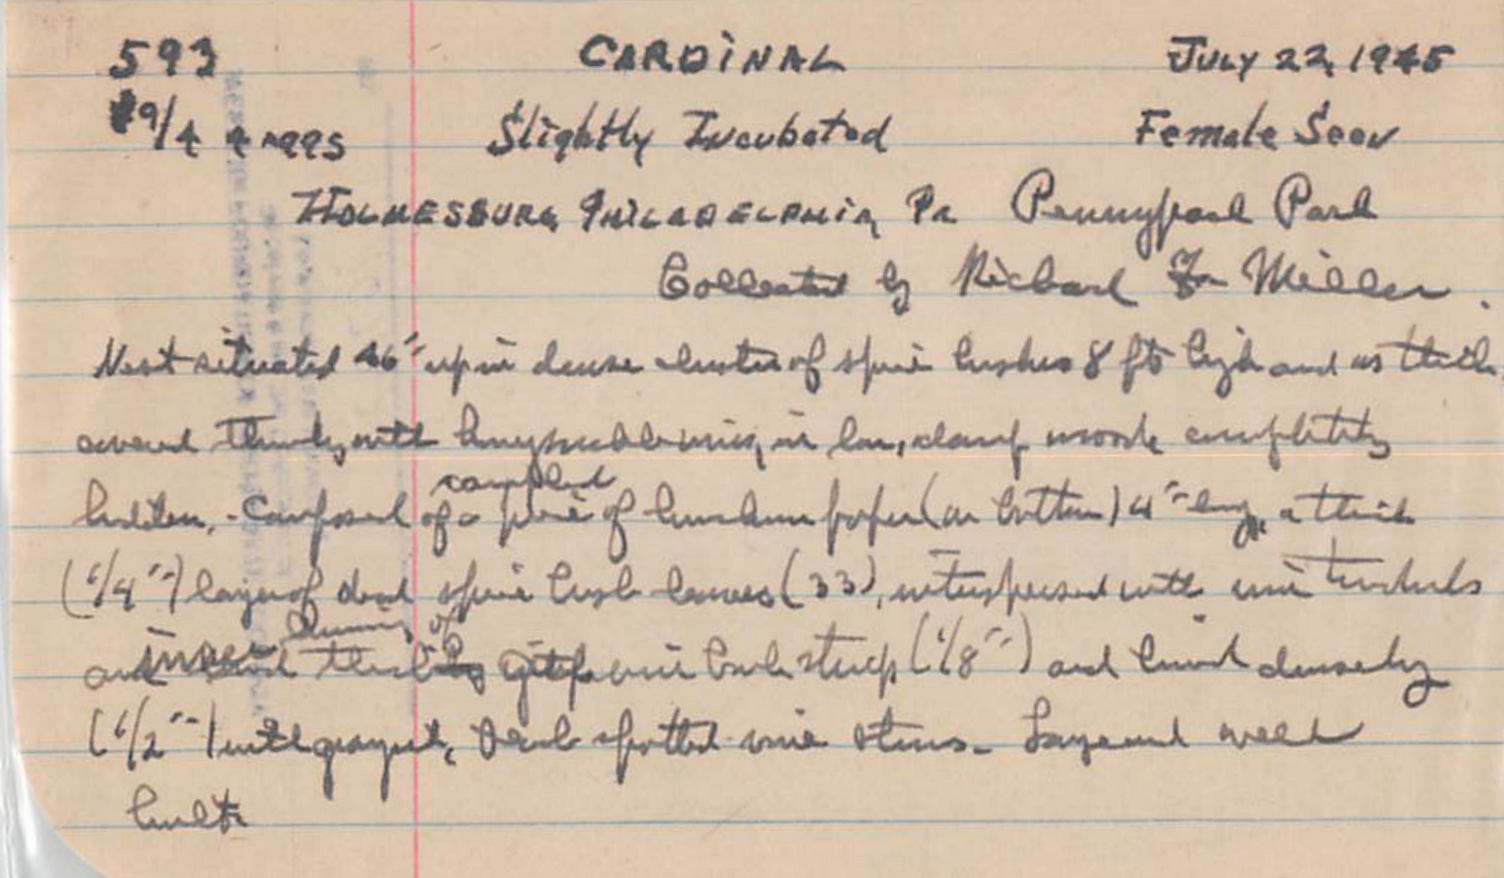 593 CARDINAL JULY 22, 1945
9/4 4 EGGS Slightly Incubated Female Seen
HOLMESBURG, PHILADELPHIA, PA Pennypack Park
Collected by Richard F. Miller.
Nest situated 46" up in dense cluster of spice bushes 8 ft high and as thick,
covered thinly with honeysuckle vines, in low, damp woods completely
hidden. - Composed of a crumpled piece of
(1/4") layer of dead spice bush leaves (33), interspersed with vine tendrils
and inner lining of grape vine bark strips (1/8") and lined densely
(1/2") with dark spotted vine stems - Large and well
built